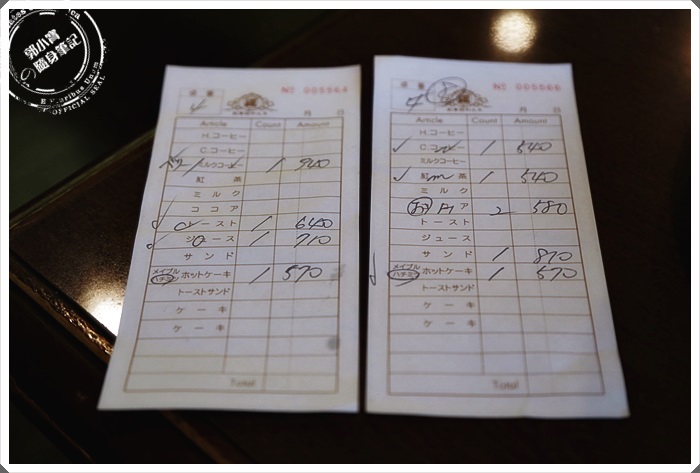 郭小寶
の隨身筆記
E Pluribus Unum
OFFICIAL SEAL
No 005564
4
月 日
Article Count Amount
H.コーヒー
C.コーヒー
ミルクコーヒー 1 940
紅茶
ミルク
ココア
トースト 1 640
ジュース 1 710
サンド
メイプル
ハチミツ ホットケーキ 1 570
トーストサンド
ケーキ
ケーキ
Total
月 日
Article Count Amount
H.コーヒー
C.コーヒー 1 540
ミルクコーヒー
紅茶 1 540
ミルク
ココア 2 580
トースト
ジュース
サンド 1 810
メイプル
ハチミツ ホットケーキ 1 570
トーストサンド
ケーキ
ケーキ
Total